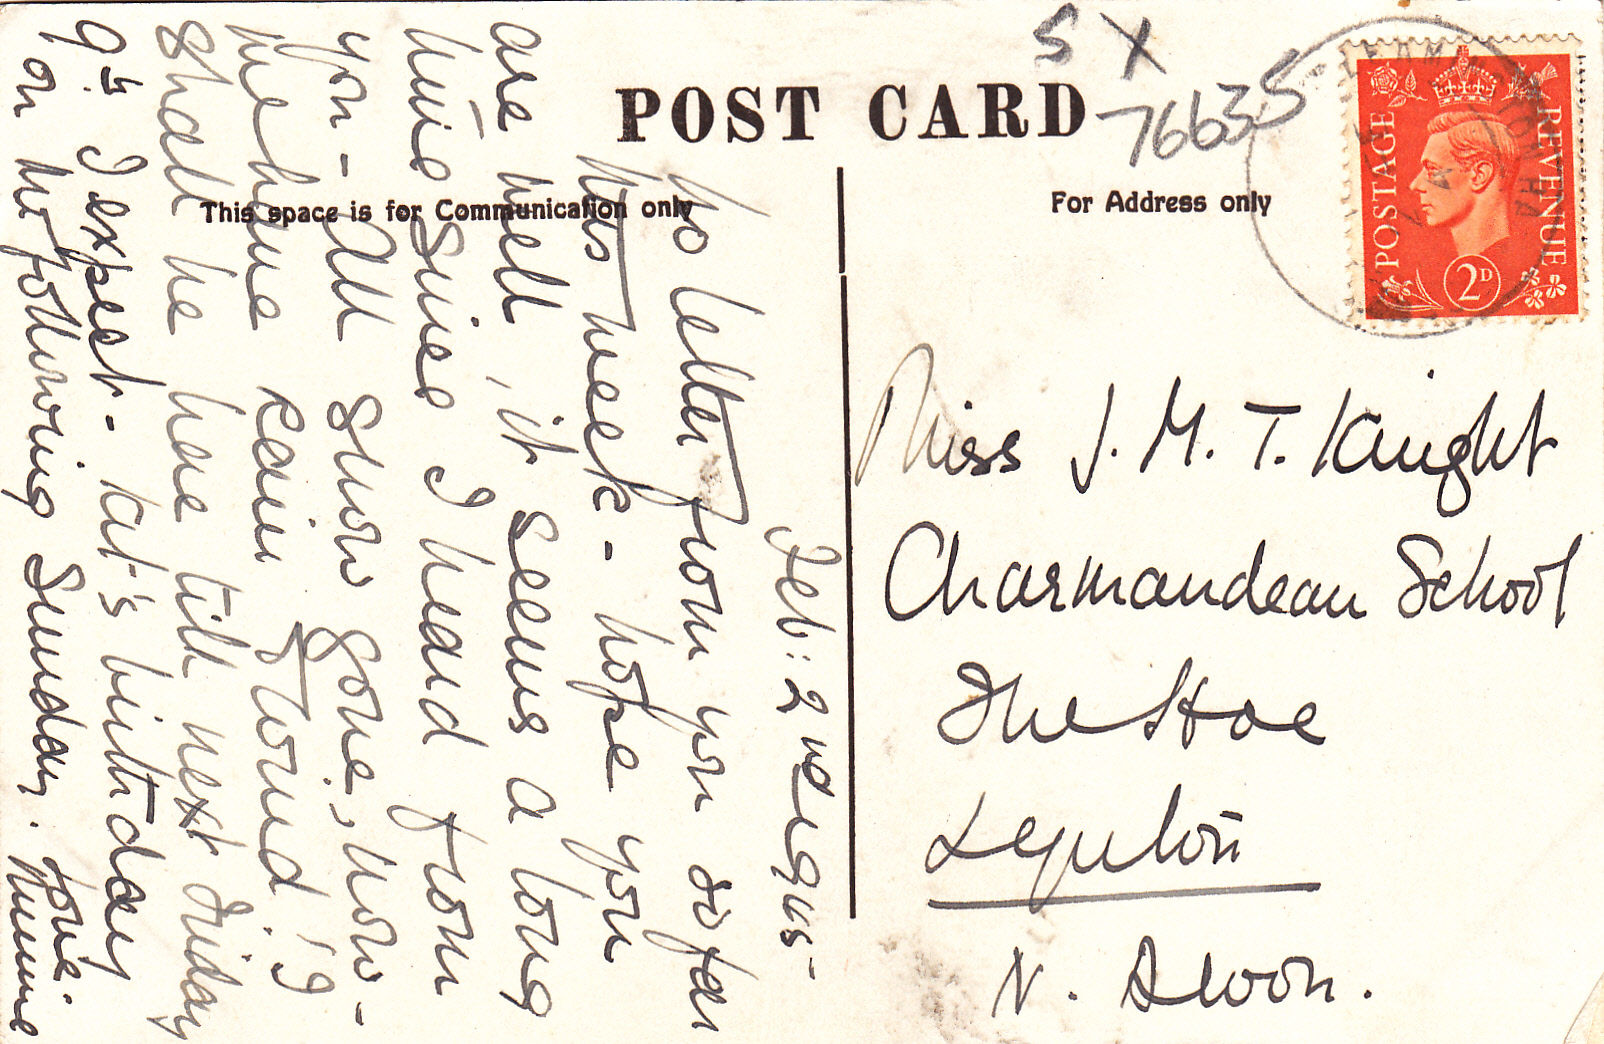 POST CARD
This space is for Communication only
For Address only
5 X
76635
POSTAGE
REVENUE
2D
LEAMINGTON SPA
Feb: 2nd 1945-
No letter from you so far
this week - hope you
are well, it seems a long
time since I heard from
you - All snow gone, now -
we have rain & wind! I
shall be here till next Friday
9th I expect - Kat's birthday
on the following Sunday. Love.
Mummie
Miss J. M. T. Knight
Charmandean School
The Hoe
Lynton
N. Devon.